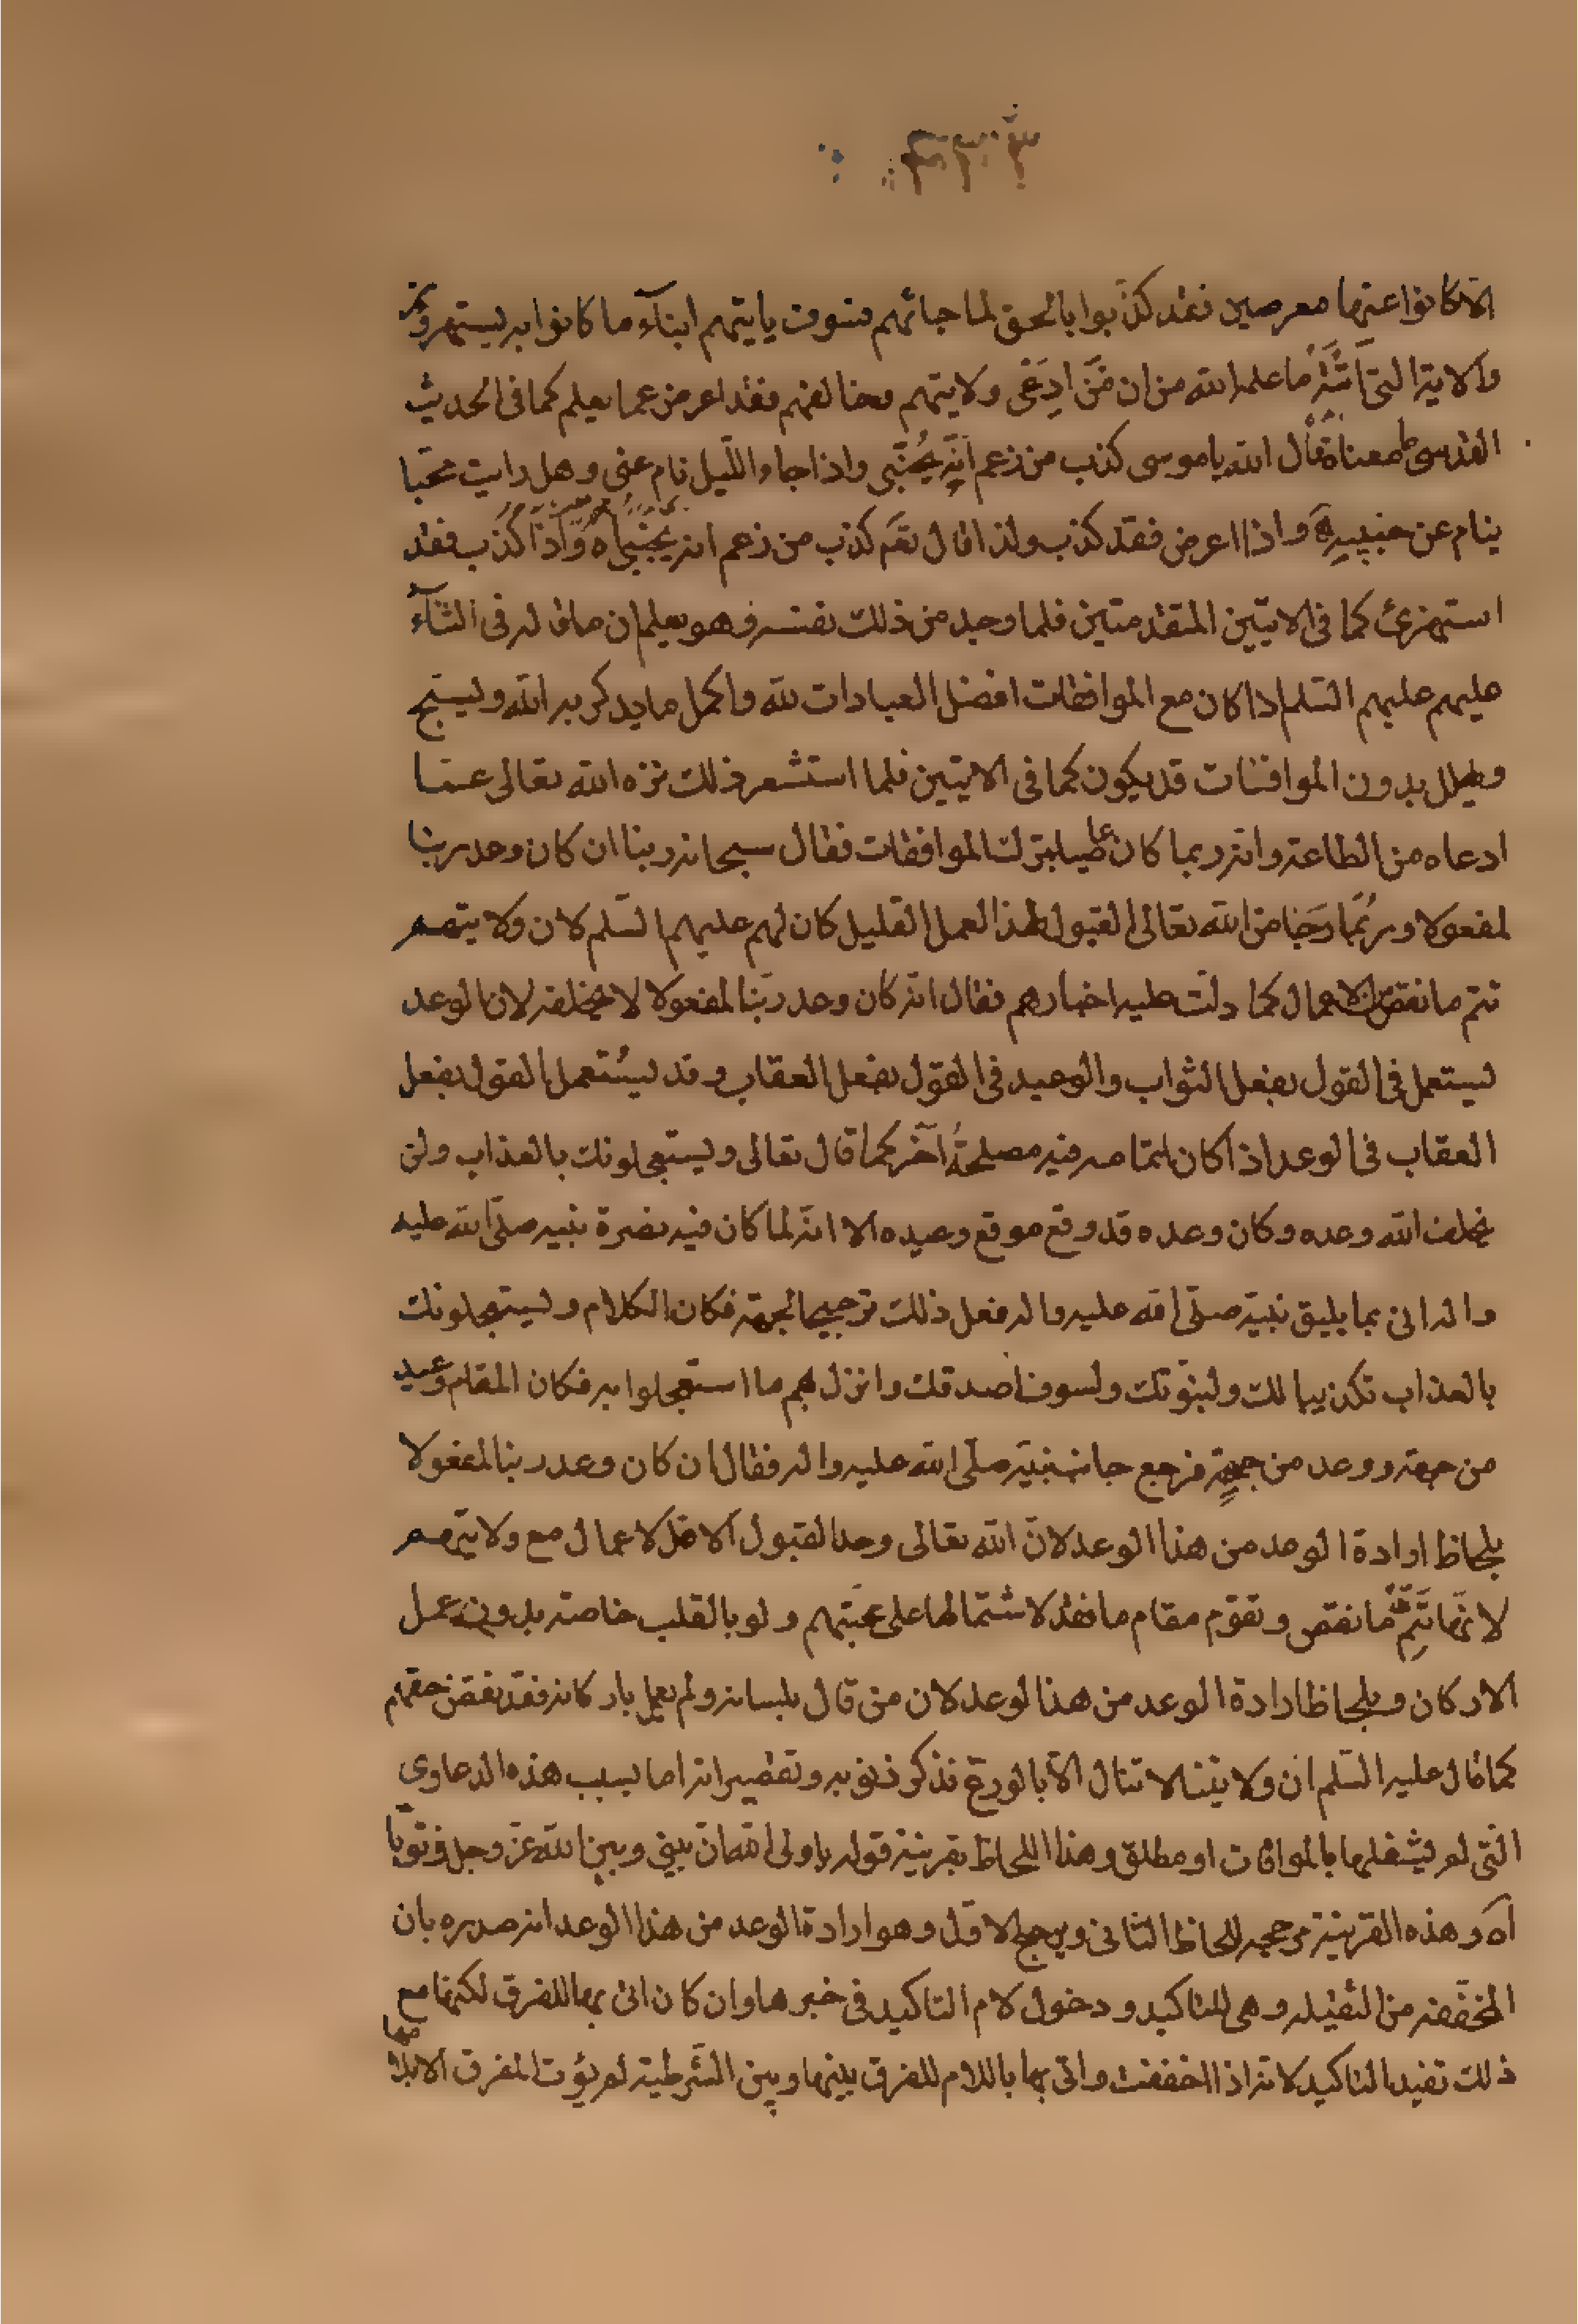 ٣٣٣
الا كانوا عنها معرضين فقد كذّبوا بالحق لما جائهم فسوف يايتهم ابنآء ما كانوا به يستهزؤن
والاية التى اشير ما علمه الله من ان مَن ادعى ولايتهم وخالفهم فقد اعرض عما يعلم كما فى الحديث
القدسى ما معناه قال الله يا موسى كذب من زعم انّه يحبّنى واذا جاء اللّيل نام عنى وهل رايت محبّا
ينام عن حبيبه واذا اعرض فقد كذب ولذا قال تعَم كذب من زعم انه يحبّنى اه واذا كذب فقد
استهزئ كما فى الايتين المتقدمتين فلما وجد من ذلك نفسه وهو يعلم ان ما قاله فى الثنآء
عليهم عليهم السّلم اذا كان مع الموافقات افضل العبادات لله واكمل ما يذكر به الله ويسبّح
ويهلل بدون الموافقات قد يكون كما فى الايتين فلما استشعر ذلك نزه الله تعالى عما
ادعاه من الطاعة وانه ربما كان عاصيا بترك الموافقات فقال سبحان ربنا ان كان وعد ربنا
لمفعولا وربّما رجَا من الله تعالى القبول لهذا العمل القليل كان لهم عليهم السّلم لان ولايتهم
تتم ما نقص من الاعمال كما دلّت عليه اخبارهم فقال انه كان وعد ربّنا لمفعولا لا يخلفه لان الوعد
يستعمل فى القول بفعل الثواب والوعيد فى القول بفعل العقاب وقد يستعمل القول بفعل
العقاب فى الوعد اذا كان لمقامه فيه مصلحةُ اخر كما قال تعالى ويستعجلونك بالعذاب ولن
يخلف الله وعده وكان وعده قد وقع موقع وعيده الا انه لما كان فيه نصرة نبيه صلّى الله عليه
واله اتى بما يليق بنبيّه صلّى الله عليه واله فعل ذلك ترجيحا لجهته فكان الكلام ويستعجلونك
بالعذاب تكذيبا لك ولنبوّتك ولسوف اصدقك وانزل بهم ما استعجلوا به فكان المقام وعيد
من جهة ووعد من جهةٍ فرجح جانب نبيّه صلّى الله عليه واله فقال ان كان وعد ربنا لمفعولا
بلحاظ ارادة الوعد من هذا الوعد لانّ الله تعالى وعد القبول لاقل الاعمال مع ولايتهم
لانها تتِمّ ما نقص وتقوّم مقام ما فقد لاشتمالها على محبّتهم ولو بالقلب خاصة بدون عمل
الاركان وبلحاظ ارادة الوعد من هذا الوعد لان من قال بلسانه ولم يعمل باركانه فقد نقص حقهم
كما قال عليه السّلم ان ولايتنا لا تنال الّا بالورع فذكر ذنوبه وتقصيراته اما بسبب هذه الدعاوى
التى لم يشفعلها بالموافات او مطلق وهذا اللحاظ بقرينة قوله يا ولى الله ان بينى وبين الله عز وجل ذنوبًا
اه وهذه القرينة مرجحه للحاظ الثانى ويرجح الاوّل وهو ارادة الوعد من هذا الوعد انه صدره بان
المخفّفة من الثقيله وهى للتاكيد ودخول لام التاكيد فى خبرها وان كان اتى بها للفرق لكنها مع
ذلك تفيد التاكيد لانه اذا خففت واتى بها باللام للفرق بينها وبين الشّرطية لم يؤت المفرق الا بما